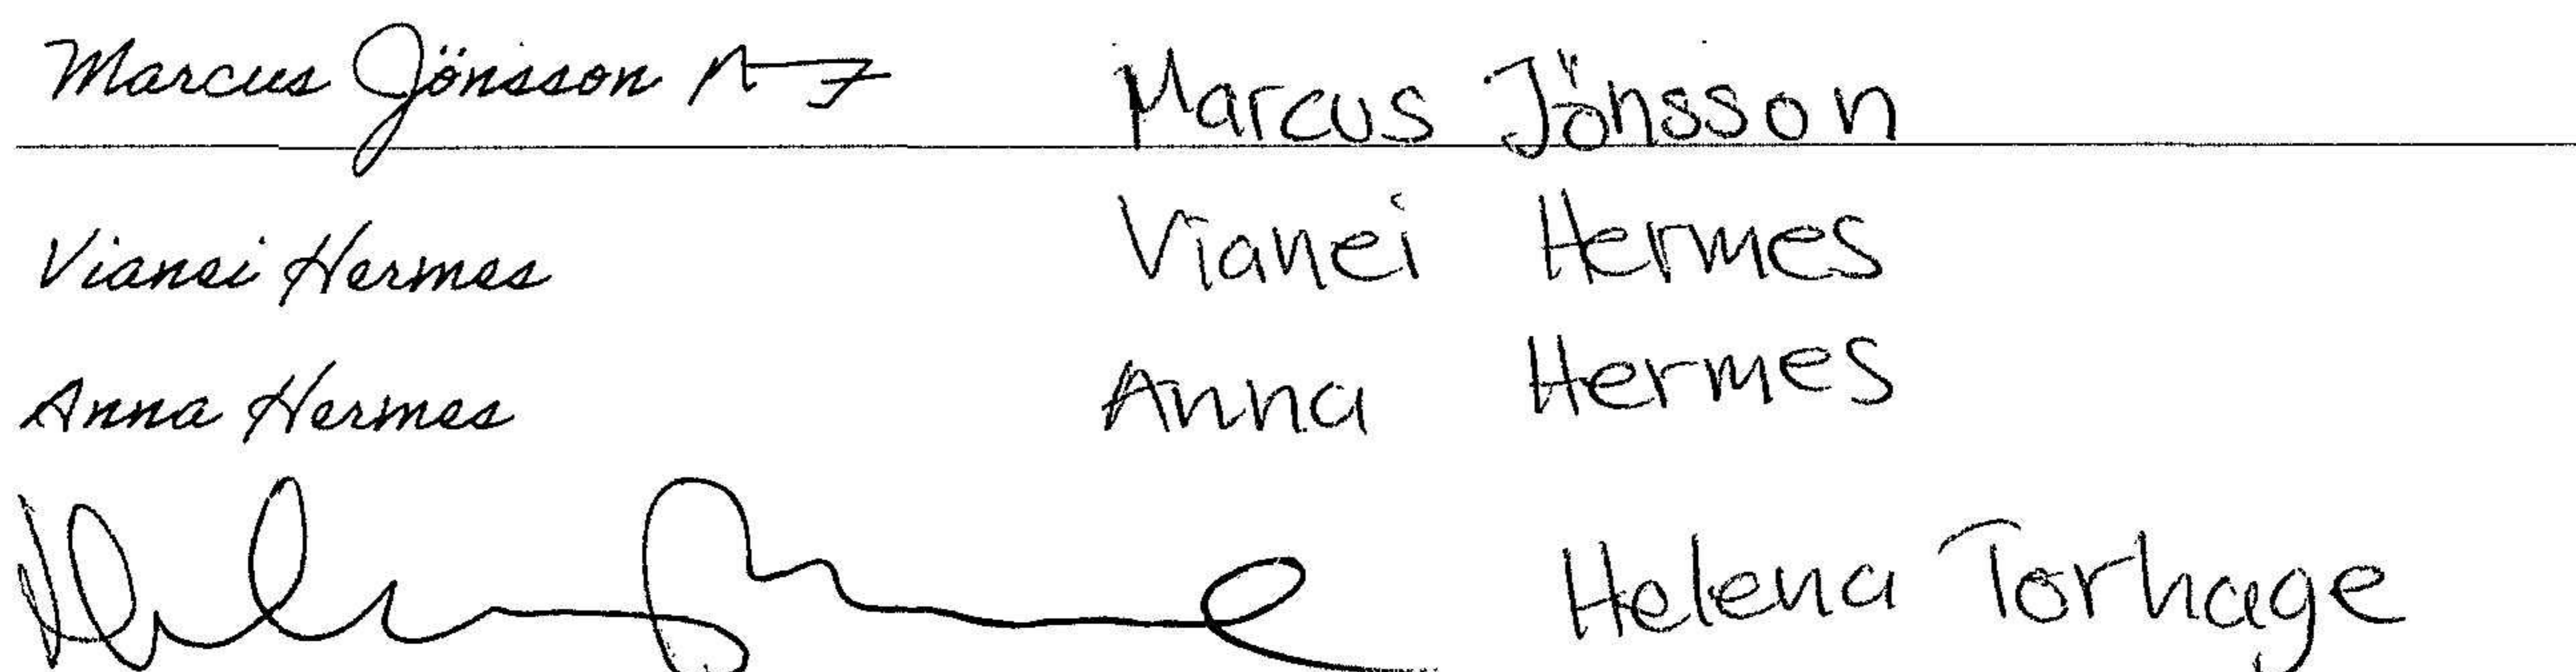 Marcus Jönsson Marcus Jönsson
Vianei Hermes Vianei Hermes
Anna Hermes Anna Hermes
Helena Torhage